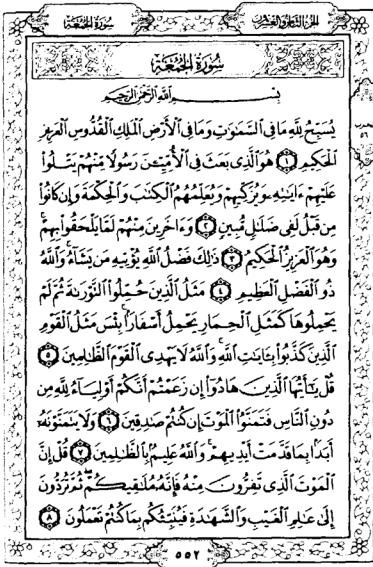 سُورَةُ الْجُمُعَةِ
الجزء الثامن والعشرون
سُورَةُ الْجُمُعَةِ
بِسْمِ اللَّهِ الرَّحْمَٰنِ الرَّحِيمِ
يُسَبِّحُ لِلَّهِ مَا فِي السَّمَٰوَٰتِ وَمَا فِي الْأَرْضِ الْمَلِكِ الْقُدُّوسِ الْعَزِيزِ
الْحَكِيمِ ١ هُوَ الَّذِي بَعَثَ فِي الْأُمِّيِّينَ رَسُولًا مِنْهُمْ يَتْلُوا
عَلَيْهِمْ ءَايَٰتِهِ وَيُزَكِّيهِمْ وَيُعَلِّمُهُمُ الْكِتَٰبَ وَالْحِكْمَةَ وَإِن كَانُوا
مِن قَبْلُ لَفِي ضَلَٰلٍ مُّبِينٍ ٢ وَءَاخَرِينَ مِنْهُمْ لَمَّا يَلْحَقُوا بِهِمْ
وَهُوَ الْعَزِيزُ الْحَكِيمُ ٣ ذَٰلِكَ فَضْلُ اللَّهِ يُؤْتِيهِ مَن يَشَاءُ وَاللَّهُ
ذُو الْفَضْلِ الْعَظِيمِ ٤ مَثَلُ الَّذِينَ حُمِّلُوا التَّوْرَىٰةَ ثُمَّ لَمْ
يَحْمِلُوهَا كَمَثَلِ الْحِمَارِ يَحْمِلُ أَسْفَارًا بِئْسَ مَثَلُ الْقَوْمِ
الَّذِينَ كَذَّبُوا بِـَٔايَٰتِ اللَّهِ وَاللَّهُ لَا يَهْدِي الْقَوْمَ الظَّٰلِمِينَ ٥
قُلْ يَٰأَيُّهَا الَّذِينَ هَادُوا إِن زَعَمْتُمْ أَنَّكُمْ أَوْلِيَاءُ لِلَّهِ مِن
دُونِ النَّاسِ فَتَمَنَّوُا الْمَوْتَ إِن كُنتُمْ صَٰدِقِينَ ٦ وَلَا يَتَمَنَّوْنَهُ
أَبَدًا بِمَا قَدَّمَتْ أَيْدِيهِمْ وَاللَّهُ عَلِيمٌ بِالظَّٰلِمِينَ ٧ قُلْ إِنَّ
الْمَوْتَ الَّذِي تَفِرُّونَ مِنْهُ فَإِنَّهُ مُلَٰقِيكُمْ ثُمَّ تُرَدُّونَ
إِلَىٰ عَٰلِمِ الْغَيْبِ وَالشَّهَٰدَةِ فَيُنَبِّئُكُم بِمَا كُنتُمْ تَعْمَلُونَ ٨
٥٥٢